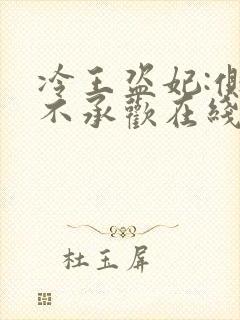 冷王盗妃:侧
不承歡在綫
杜玉屏